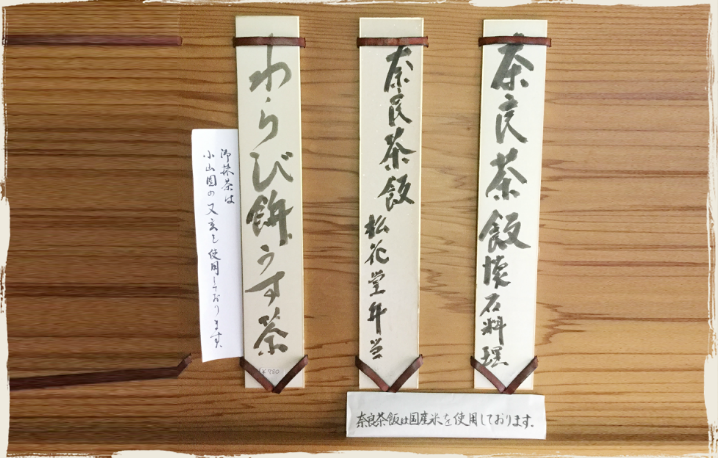 奈良茶飯懐石料理
奈良茶飯 松花堂弁当
わらび餅 うす茶
御抹茶は
小山園の又玄を使用しております。
奈良茶飯は国産米を使用しております。